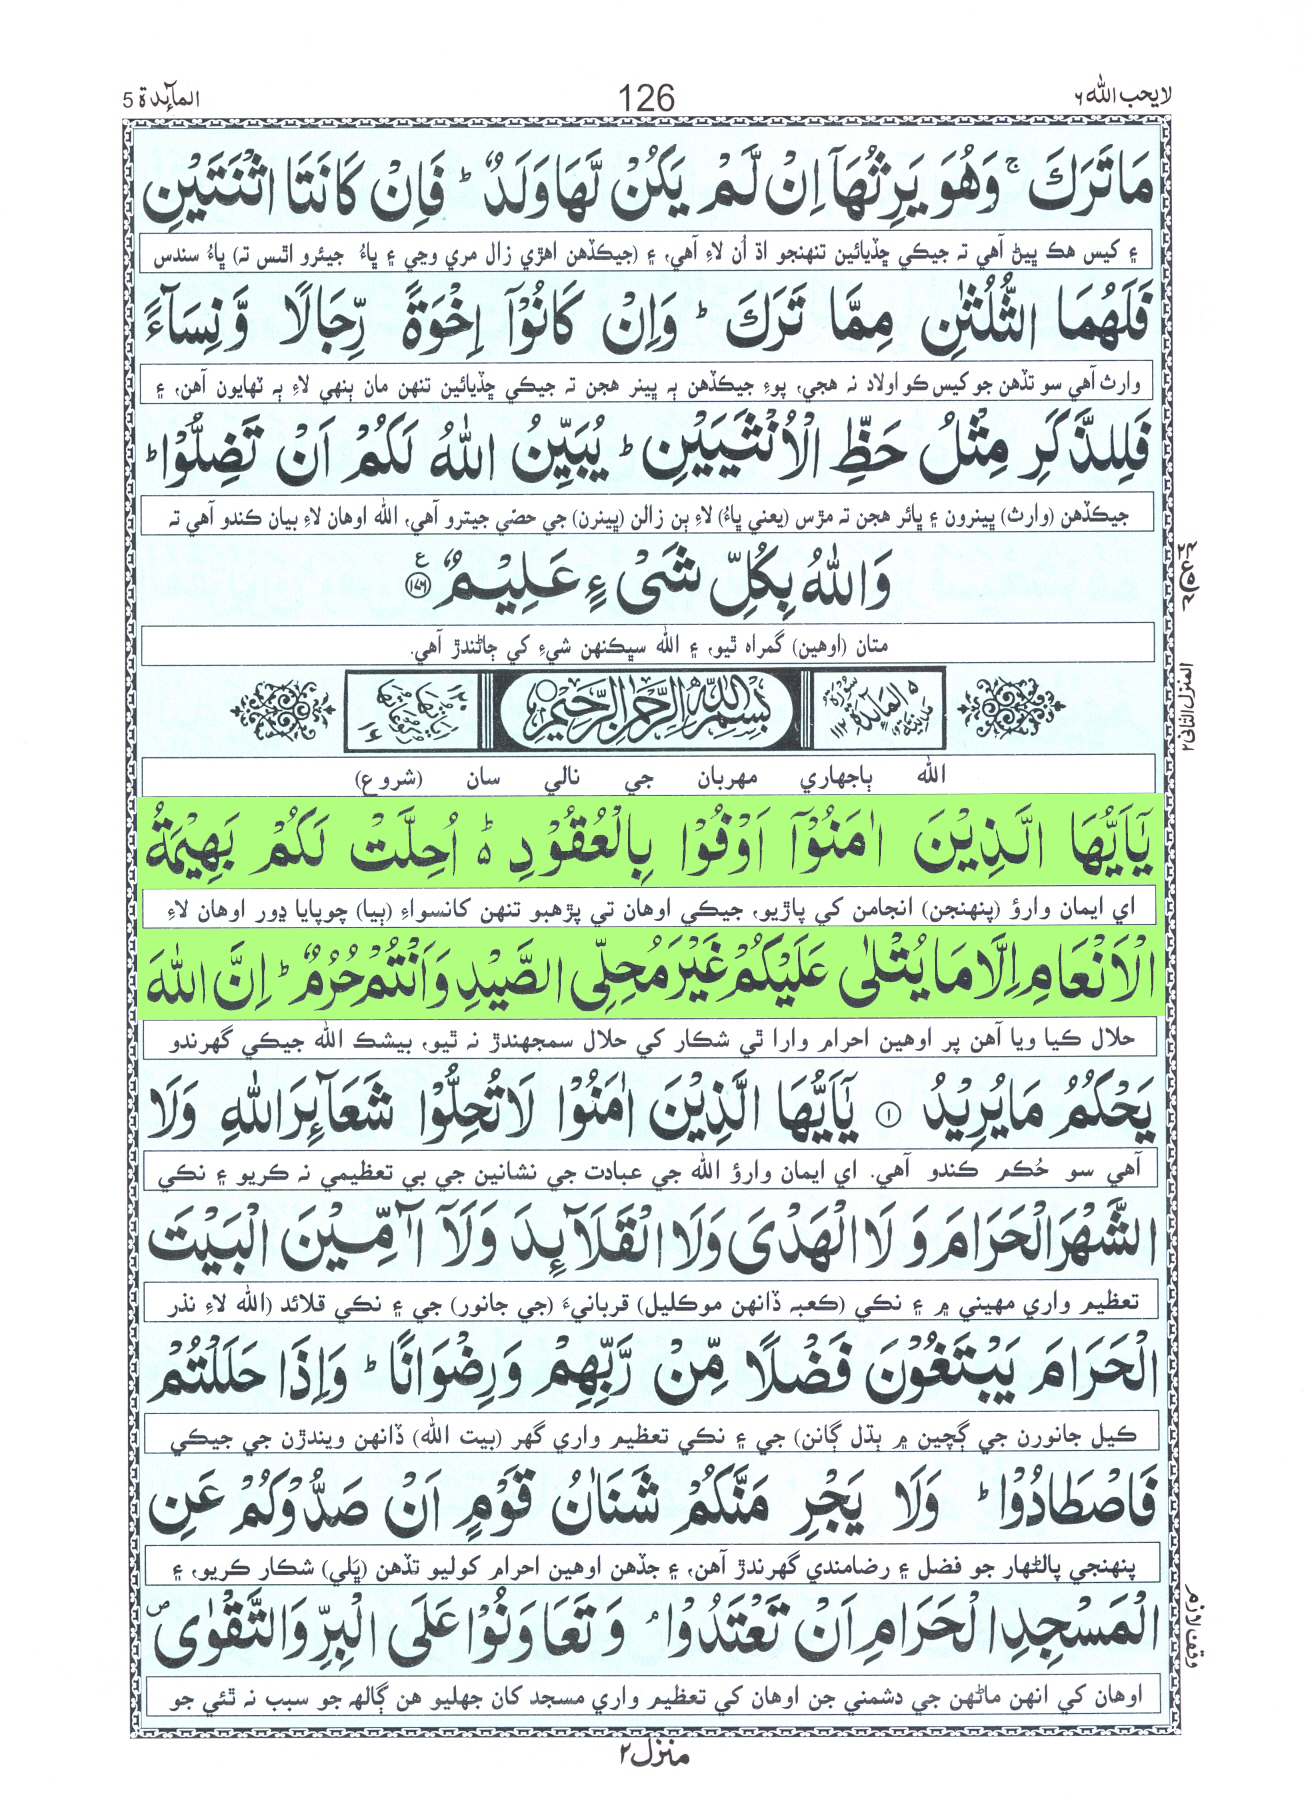 لايحب الله ۶
126
المآئدة 5
مَا تَرَكَ ۚ وَهُوَ يَرِثُهَآ اِنْ لَّمْ يَكُنْ لَّهَا وَلَدٌ ؕ فَاِنْ كَانَتَا اثْنَتَيْنِ
۽ کيس هڪ ڀيڻ آهي تہ جيڪي ڇڏيائين تنهنجو اڌ اُن لاءِ آهي، ۽ (جيڪڏهن اهڙي زال مري وڃي ۽ ڀاءُ جيئرو اٿس تہ) ڀاءُ سندس
فَلَهُمَا الثُّلُثٰنِ مِمَّا تَرَكَ ؕ وَاِنْ كَانُوْٓا اِخْوَةً رِّجَالًا وَّنِسَآءً
وارث آهي سو تڏهن جو کيس ڪو اولاد نہ هجي، پوءِ جيڪڏهن ٻہ ڀينر هجن تہ جيڪي ڇڏيائين تنهن مان ٻنهي لاءِ ٻہ ٽهايون آهن، ۽
فَلِلذَّكَرِ مِثْلُ حَظِّ الْاُنْثَيَيْنِ ؕ يُبَيِّنُ اللّٰهُ لَكُمْ اَنْ تَضِلُّوْا ؕ
جيڪڏهن (وارث) ڀينرون ۽ ڀائر هجن تہ مڙس (يعني ڀاءُ) لاءِ ٻن زالن (ڀينرن) جي حصّي جيترو آهي، الله اوهان لاءِ بيان ڪندو آهي تہ
وَاللّٰهُ بِكُلِّ شَیْ ءٍ عَلِيْمٌ ۧ ﴿۱۷۶﴾
متان (اوهين) گمراہ ٿيو، ۽ الله سڀڪنهن شيءِ کي ڄاڻندڙ آهي.
المنزل الثانی ۲
۵ سُوْرَةُ الْمَآئِدَةِ مَدَنِيَّةٌ ۱۱۲
بِسْمِ اللّٰهِ الرَّحْمٰنِ الرَّحِيْمِ
اٰيَاتُهَا ۱۲۰ رُكُوْعَاتُهَا ۱۶
الله ٻاجهاري مهربان جي نالي سان (شروع)
يٰٓاَيُّهَا الَّذِيْنَ اٰمَنُوْٓا اَوْفُوْا بِالْعُقُوْدِ ؕ۵ اُحِلَّتْ لَكُمْ بَهِيْمَةُ
اي ايمان وارؤ (پنهنجن) انجامن کي پاڙيو، جيڪي اوهان تي پڙهبو تنهن کانسواءِ (ٻيا) چوپايا ڍور اوهان لاءِ
الْاَنْعَامِ اِلَّا مَا يُتْلٰى عَلَيْكُمْ غَيْرَ مُحِلِّى الصَّيْدِ وَاَنْتُمْ حُرُمٌ ؕ اِنَّ اللّٰهَ
حلال ڪيا ويا آهن پر اوهين احرام وارا ٿي شڪار کي حلال سمجهندڙ نہ ٿيو، بيشڪ الله جيڪي گهرندو
يَحْكُمُ مَا يُرِيْدُ ﴿۱﴾ يٰٓاَيُّهَا الَّذِيْنَ اٰمَنُوْا لَا تُحِلُّوْا شَعَآئِرَ اللّٰهِ وَلَا
آهي سو حُڪم ڪندو آهي. اي ايمان وارؤ الله جي عبادت جي نشانين جي بي تعظيمي نہ ڪريو ۽ نڪي
الشَّهْرَ الْحَرَامَ وَلَا الْهَدْىَ وَلَا الْقَلَآئِدَ وَلَآ آٰمِّيْنَ الْبَيْتَ
تعظيم واري مهيني ۾ ۽ نڪي (ڪعبہ ڏانهن موڪليل) قربانيءَ (جي جانور) جي ۽ نڪي قلائد (الله لاءِ نذر
الْحَرَامَ يَبْتَغُوْنَ فَضْلًا مِّنْ رَّبِّهِمْ وَرِضْوَانًا ؕ وَاِذَا حَلَلْتُمْ
ڪيل جانورن جي ڳچين ۾ ٻڌل ڳانن) جي ۽ نڪي تعظيم واري گهر (بيت الله) ڏانهن ويندڙن جي جيڪي
فَاصْطَادُوْا ؕ وَلَا يَجْرِ مَنَّكُمْ شَنَاٰنُ قَوْمٍ اَنْ صَدُّوْكُمْ عَنِ
پنهنجي پالڻهار جو فضل ۽ رضامندي گهرندڙ آهن، ۽ جڏهن اوهين احرام کوليو تڏهن (ڀَلي) شڪار ڪريو، ۽
الْمَسْجِدِ الْحَرَامِ اَنْ تَعْتَدُوْا ۘ وَتَعَاوَنُوْا عَلَى الْبِرِّ وَالتَّقْوٰى ۪
وقف لازم
اوهان کي انهن ماڻهن جي دشمني جن اوهان کي تعظيم واري مسجد کان جهليو هن ڳالهہ جو سبب نہ ٿئي جو
منزل ۲